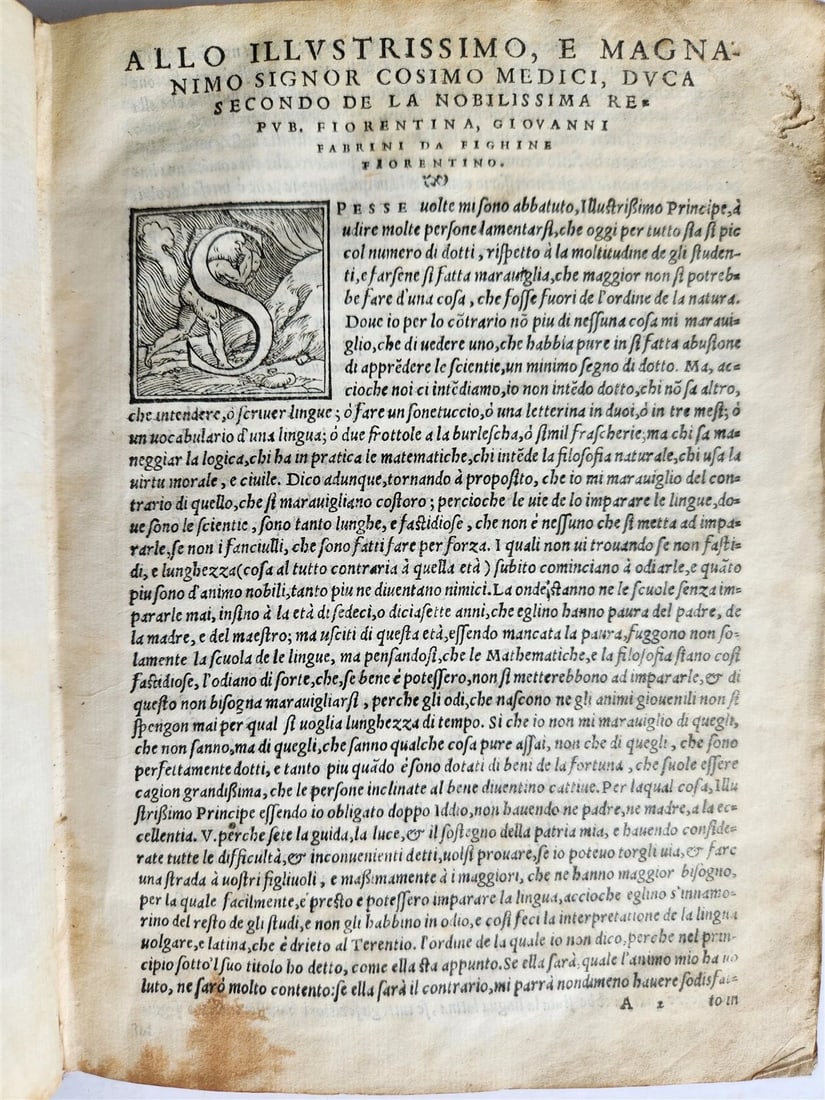 ALLO ILLVSTRISSIMO, E MAGNA-
NIMO SIGNOR COSIMO MEDICI, DVCA
SECONDO DE LA NOBILISSIMA RE-
PVB. FIORENTINA, GIOVANNI
FABRINI DA FIGHINE
FIORENTINO.
SPESSE uolte mi sono abbatuto, Illustrißimo Principe, à
udire molte persone lamentarsi, che oggi per tutto sta si pic
col numero di dotti, rispetto à la moltitudine de gli studen-
ti, e farsene si fatta marauiglia, che maggior non si potreb-
be fare d'una cosa, che fosse fuori de l'ordine de la natura.
Doue io per lo cõtrario nõ piu di nessuna cosa mi maraui-
glio, che di uedere uno, che habbia pure in si fatta abusione
di apprẽdere le scientie, un minimo segno di dotto. Ma, ac-
cioche noi ci intẽdiamo, io non intẽdo dotto, chi nõ sa altro,
che intendere, ò scriuer lingue; ò fare un sonetuccio, ò una letterina in duoi, ò in tre mesi; ò
un uocabulario d'una lingua; ò due frottole a la burlescha, ò simil frascherie; ma chi sa ma-
neggiar la logica, chi ha in pratica le matematiche, chi intẽde la filosofia naturale, chi usa la
uirtu morale, e ciuile. Dico adunque, tornando à proposito, che io mi marauiglio del con-
trario di quello, che si marauigliano costoro; percioche le uie de lo imparare le lingue, do-
ue sono le scientie, sono tanto lunghe, e fastidiose, che non è nessuno che si metta ad impa-
rarle, se non i fanciulli, che sono fatti fare per forza. I quali non ui trouando se non fasti-
di, e lunghezza (cosa al tutto contraria à quella età) subito cominciano à odiarle, e quãto
piu sono d'animo nobili, tanto piu ne diuentano nimici. La onde stanno ne le scuole senza im-
pararle mai, insino à la età di sedeci, o diciasette anni, che eglino hanno paura del padre, de
la madre, e del maestro; ma usciti di questa età, essendo mancata la paura, fuggono non so-
lamente la scuola de le lingue, ma pensandosi, che le Mathematiche, e la filosofia stano cosi
fastidiose, l'odiano di sorte, che, se bene è potessero, non si metterebbono ad impararle, & di
questo non bisogna marauigliarsi, perche gli odi, che nascono ne gli animi giouenili non si
spengon mai per qual si uoglia lunghezza di tempo. Si che io non mi marauiglio di quegli,
che non sanno, ma di quegli, che sanno qualche cosa pure assai, non che di quegli, che sono
perfettamente dotti, e tanto piu quãdo è sono dotati di beni de la fortuna, che suole essere
cagion grandißima, che le persone inclinate al bene diuentino cattiue. Per laqual cosa, Illu
strißimo Principe essendo io obligato doppo Iddio, non hauendo ne padre, ne madre, a la ec-
cellentia. V. perche sete la guida, la luce, & il sostegno della patria mia, e hauendo conside-
rate tutte le difficultà, & inconuenienti detti, uolsi prouare, se io poteuo torgli uia, & fare
una strada à uostri figliuoli, e maßimamente à i maggiori, che ne hanno maggior bisogno,
per la quale facilmente, e presto e potessero imparare la lingua, accioche eglino s'innamo-
rino del resto de gli studi, e non gli habbino in odio, e cosi feci la interpretatione de la lingua
uolgare, e latina, che è drieto al Terentio. l'ordine de la quale io non dico, perche nel prin-
cipio sotto'l suo titolo ho detto, come ella sta appunto. Se ella sarà, quale l'animo mio ha uo
luto, ne sarò molto contento: se ella sarà il contrario, mi parrà nondimeno hauere sodisfat-
A 2 to in